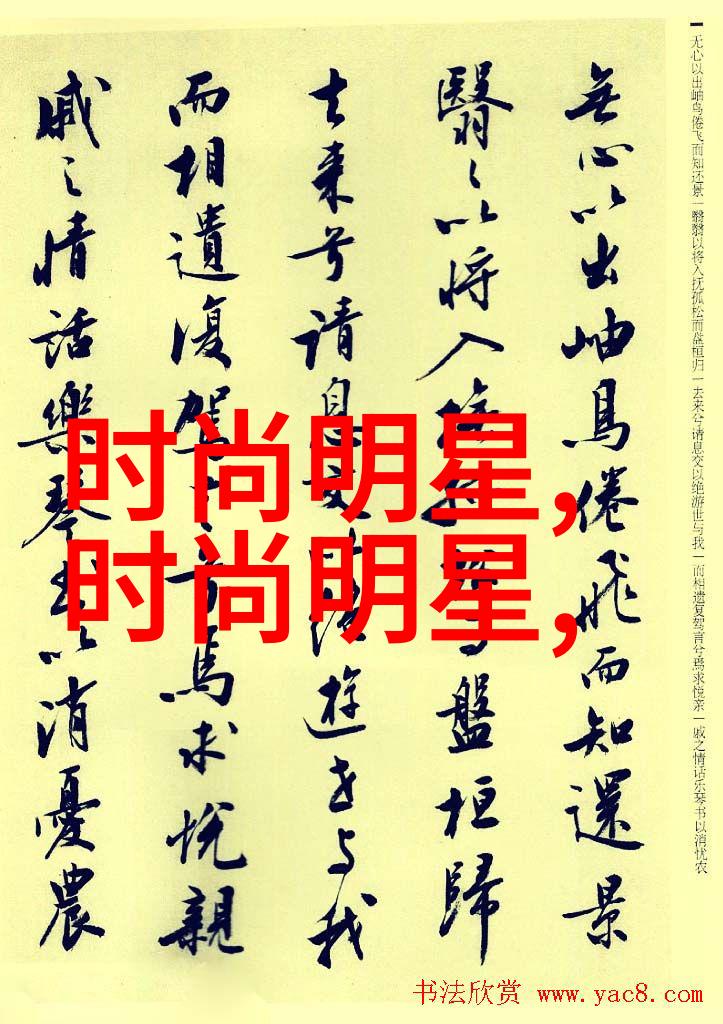 无心以出岫鸟倦飞而知还景|翳翳以将入抚孤松而盘桓归|去来兮请息交以绝游世与我|而相遗复驾言兮焉求悦亲|戚之情话乐琴书以消忧农
無心以出岫鳥倦飛而知還景
翳々以将入撫孤松而盤桓歸
去来兮請息交以絶遊世与我
而相遺復駕言兮焉求悦親
戚之情話樂琴書以消憂農
时尚明星,
时尚明星,
书法欣赏 www.yac8.com